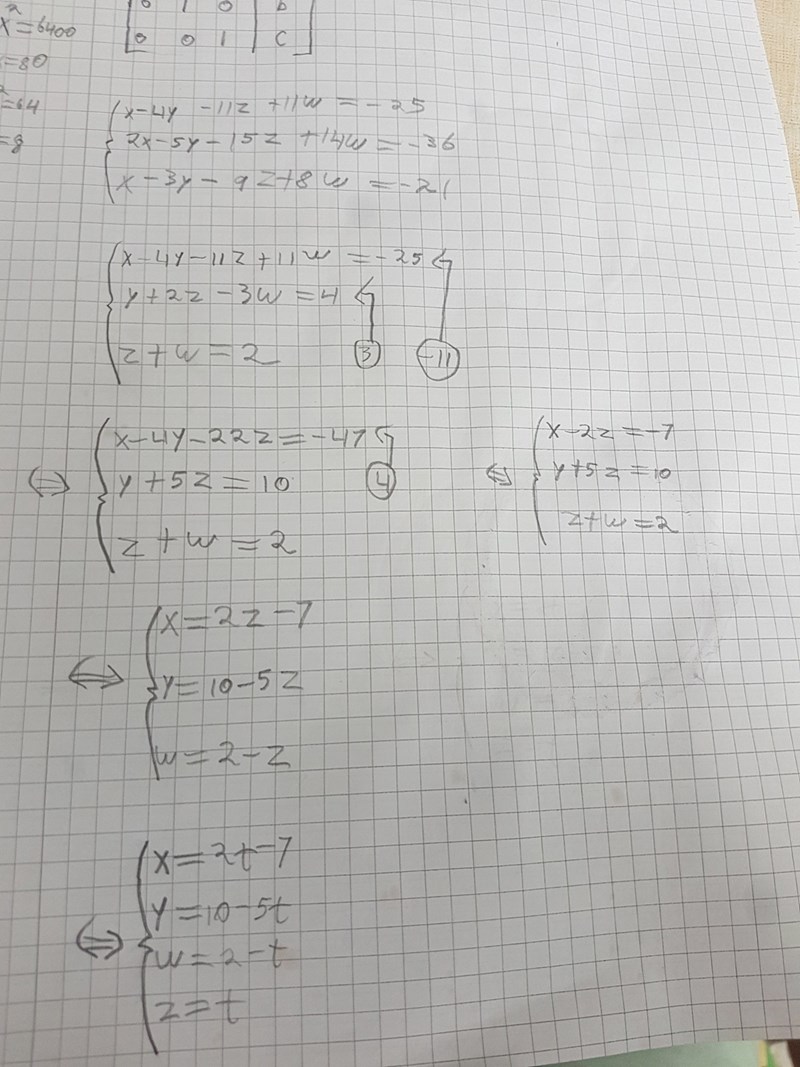 0 1 0 | b
x² = 6400
0 0 1 | C
=80
²=64
=8
x-4y -11z +11w = -25
2x-5y-15z +14w = -36
x-3y-9z+8w = -21
x-4y-11z+11w = -25
y+2z-3w = 4
z+w = 2 3 -11
⇔ x-4y-22z = -47
y+5z = 10 4
z+w = 2
⇔ x-2z = -7
y+5z = 10
z+w = 2
⇔ x = 2z-7
y = 10-5z
w = 2-z
⇔ x = 2t-7
y = 10-5t
w = 2-t
z = t